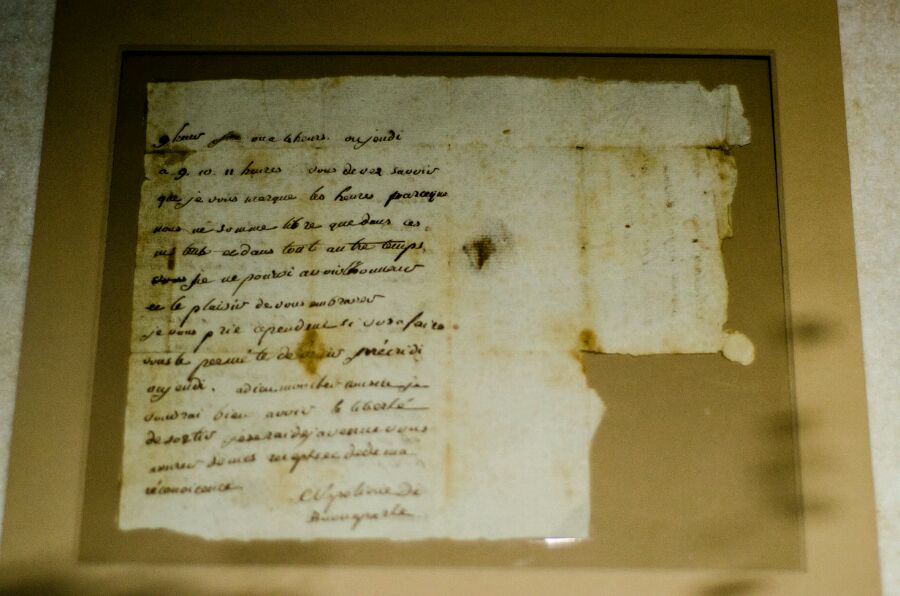 ou jeudi
a 9. 10. 11 heures vous devez savoir
que je vous marque les heures parceque
nous ne somme libre que dans ces
et dans tout autre temps.
je ne pouroi avoir l'honneur
et le plaisir de vous embrasser
je vous prie cependent si vos afaire
vous le permette de venir mécridi
ou jeudi. adieu mon cher je
voudrai bien avoir le liberté
de sortir je serai deja venue vous
de ma
réconoicence
Napolione Di
Buonaparte